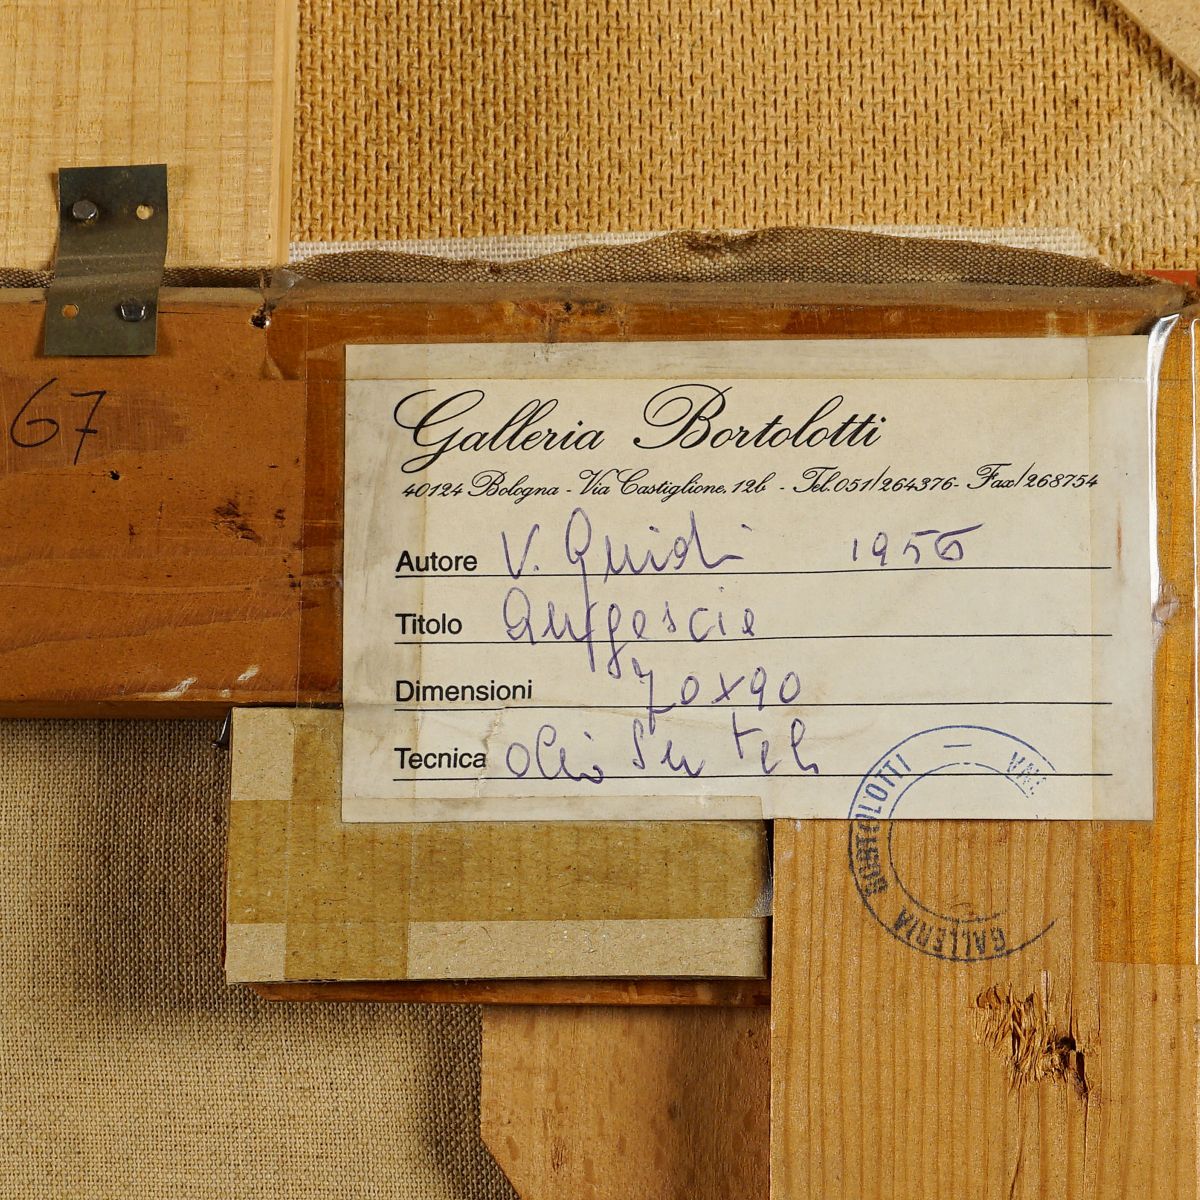 67
Galleria Bortolotti
40124 Bologna - Via Castiglione, 12b - Tel. 051/264376 - Fax/268754
Autore V. Guidi 1956
Titolo
Dimensioni 70x90
Tecnica olio su tela
GALLERIA BORTOLOTTI